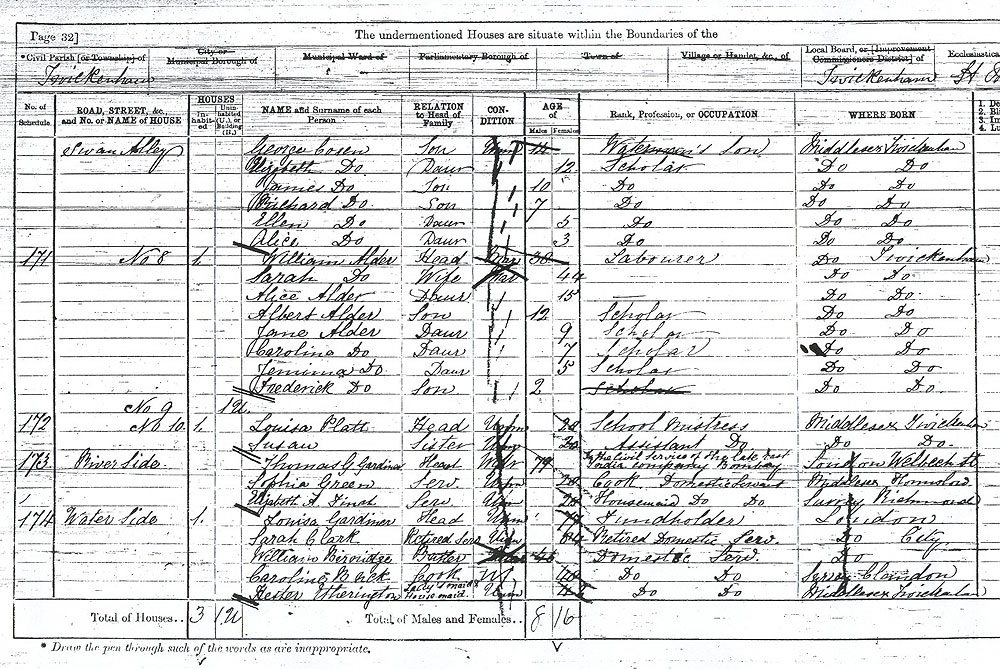 Page 32] The undermentioned Houses are situate within the Boundaries of the
*Civil Parish [or Township] of City or Municipal Borough of Municipal Ward of Parliamentary Borough of Town of Village or Hamlet, &c., of Local Board, or [Improvement Commissioners District] of Ecclesiastica
Twickenham Twickenham St
No. of Schedule ROAD, STREET, &c., and No. or NAME of HOUSE HOUSES In-habit-ed Unin-habited (U.), or Building (B.) NAME and Surname of each Person RELATION to Head of Family CON-DITION AGE Males Females Rank, Profession, or OCCUPATION WHERE BORN
Swan Alley George Cosen Son Unm 14 Waterman's Son Middlesex Twickenham
Elizabeth Do Daur 12 Scholar Do Do
James Do Son 10 Do Do Do
Richard Do Son 7 Do Do Do
Ellen Do Daur 5 Do Do Do
Alice Do Daur 3 Do Do Do
171 No 8 1 William Alder Head Mar 38 Labourer Do Twickenham
Sarah Do Wife Mar 44 Do Do
Alice Alder Daur 15 Do Do
Albert Alder Son 12 Scholar Do Do
Jane Alder Daur 9 Scholar Do Do
Caroline Do Daur 7 Scholar Do Do
Jemima Do Daur 5 Scholar Do Do
Frederick Do Son 2 Scholar Do Do
No. 9 1 U
172 No 10. 1. Louisa Platt Head Unm School Mistress Middlesex Twickenham
Susan Sister Unm Assistant Do Do Do
173 River Side Thomas G Gardiner Head Widr 79 In the Civil Service of the late East India Company Bombay London Welbeck St
Sophia Green Serv. Unm Cook, Domestic Servant Middlesex
Elizabeth A Finch Serv Unm Housemaid Do Do Surrey Richmond
174 Water Side 1. Louisa Gardiner Head Unm Fundholder London
Sarah Clark Retired Serv Unm 64 Retired Domestic Serv. Do City
William Butler Domestic Serv. Do
Caroline Cook Do Do Surrey Clandon
Hester Etherington Lady's maid & House maid Unm Do Do Middlesex Twickenham
Total of Houses.. 3 1U Total of Males and Females.. 8 16
* Draw the pen through such of the words as are inappropriate.